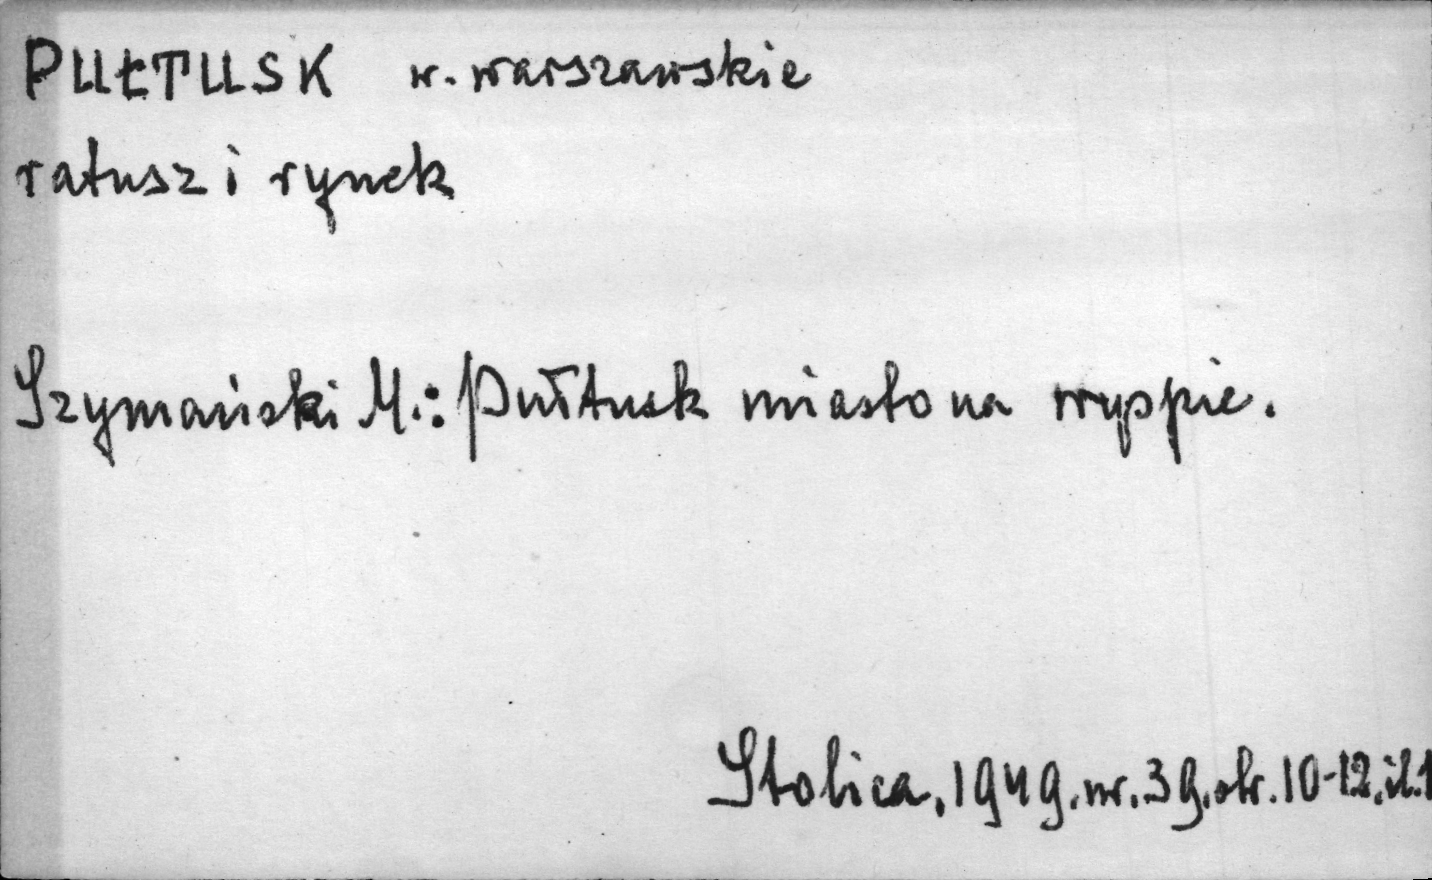 PUŁTUSK w. warszawskie
ratusz i rynek
Szymański M.: Pułtusk miasto na wyspie.
Stolica, 1949. nr. 39. str. 10-12. il. 1